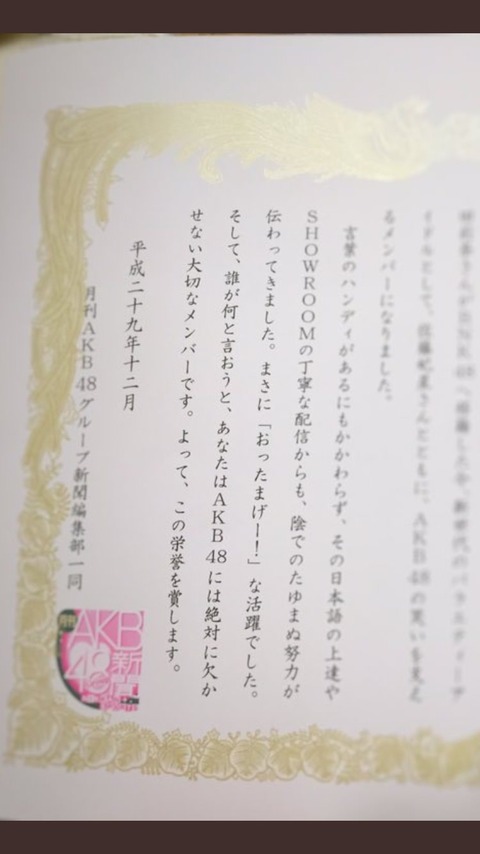 イドルとして、佐藤妃星さんとともに、AKB48の笑いを支え
るメンバーになりました。
言葉のハンディがあるにもかかわらず、その日本語の上達や
SHOWROOMの丁寧な配信からも、陰でのたゆまぬ努力が
伝わってきました。まさに「おったまげー！」な活躍でした。
そして、誰が何と言おうと、あなたはAKB48には絶対に欠か
せない大切なメンバーです。よって、この栄誉を賞します。
平成二十九年十二月
月刊AKB48グループ新聞編集部一同
月刊
AKB
48
新聞